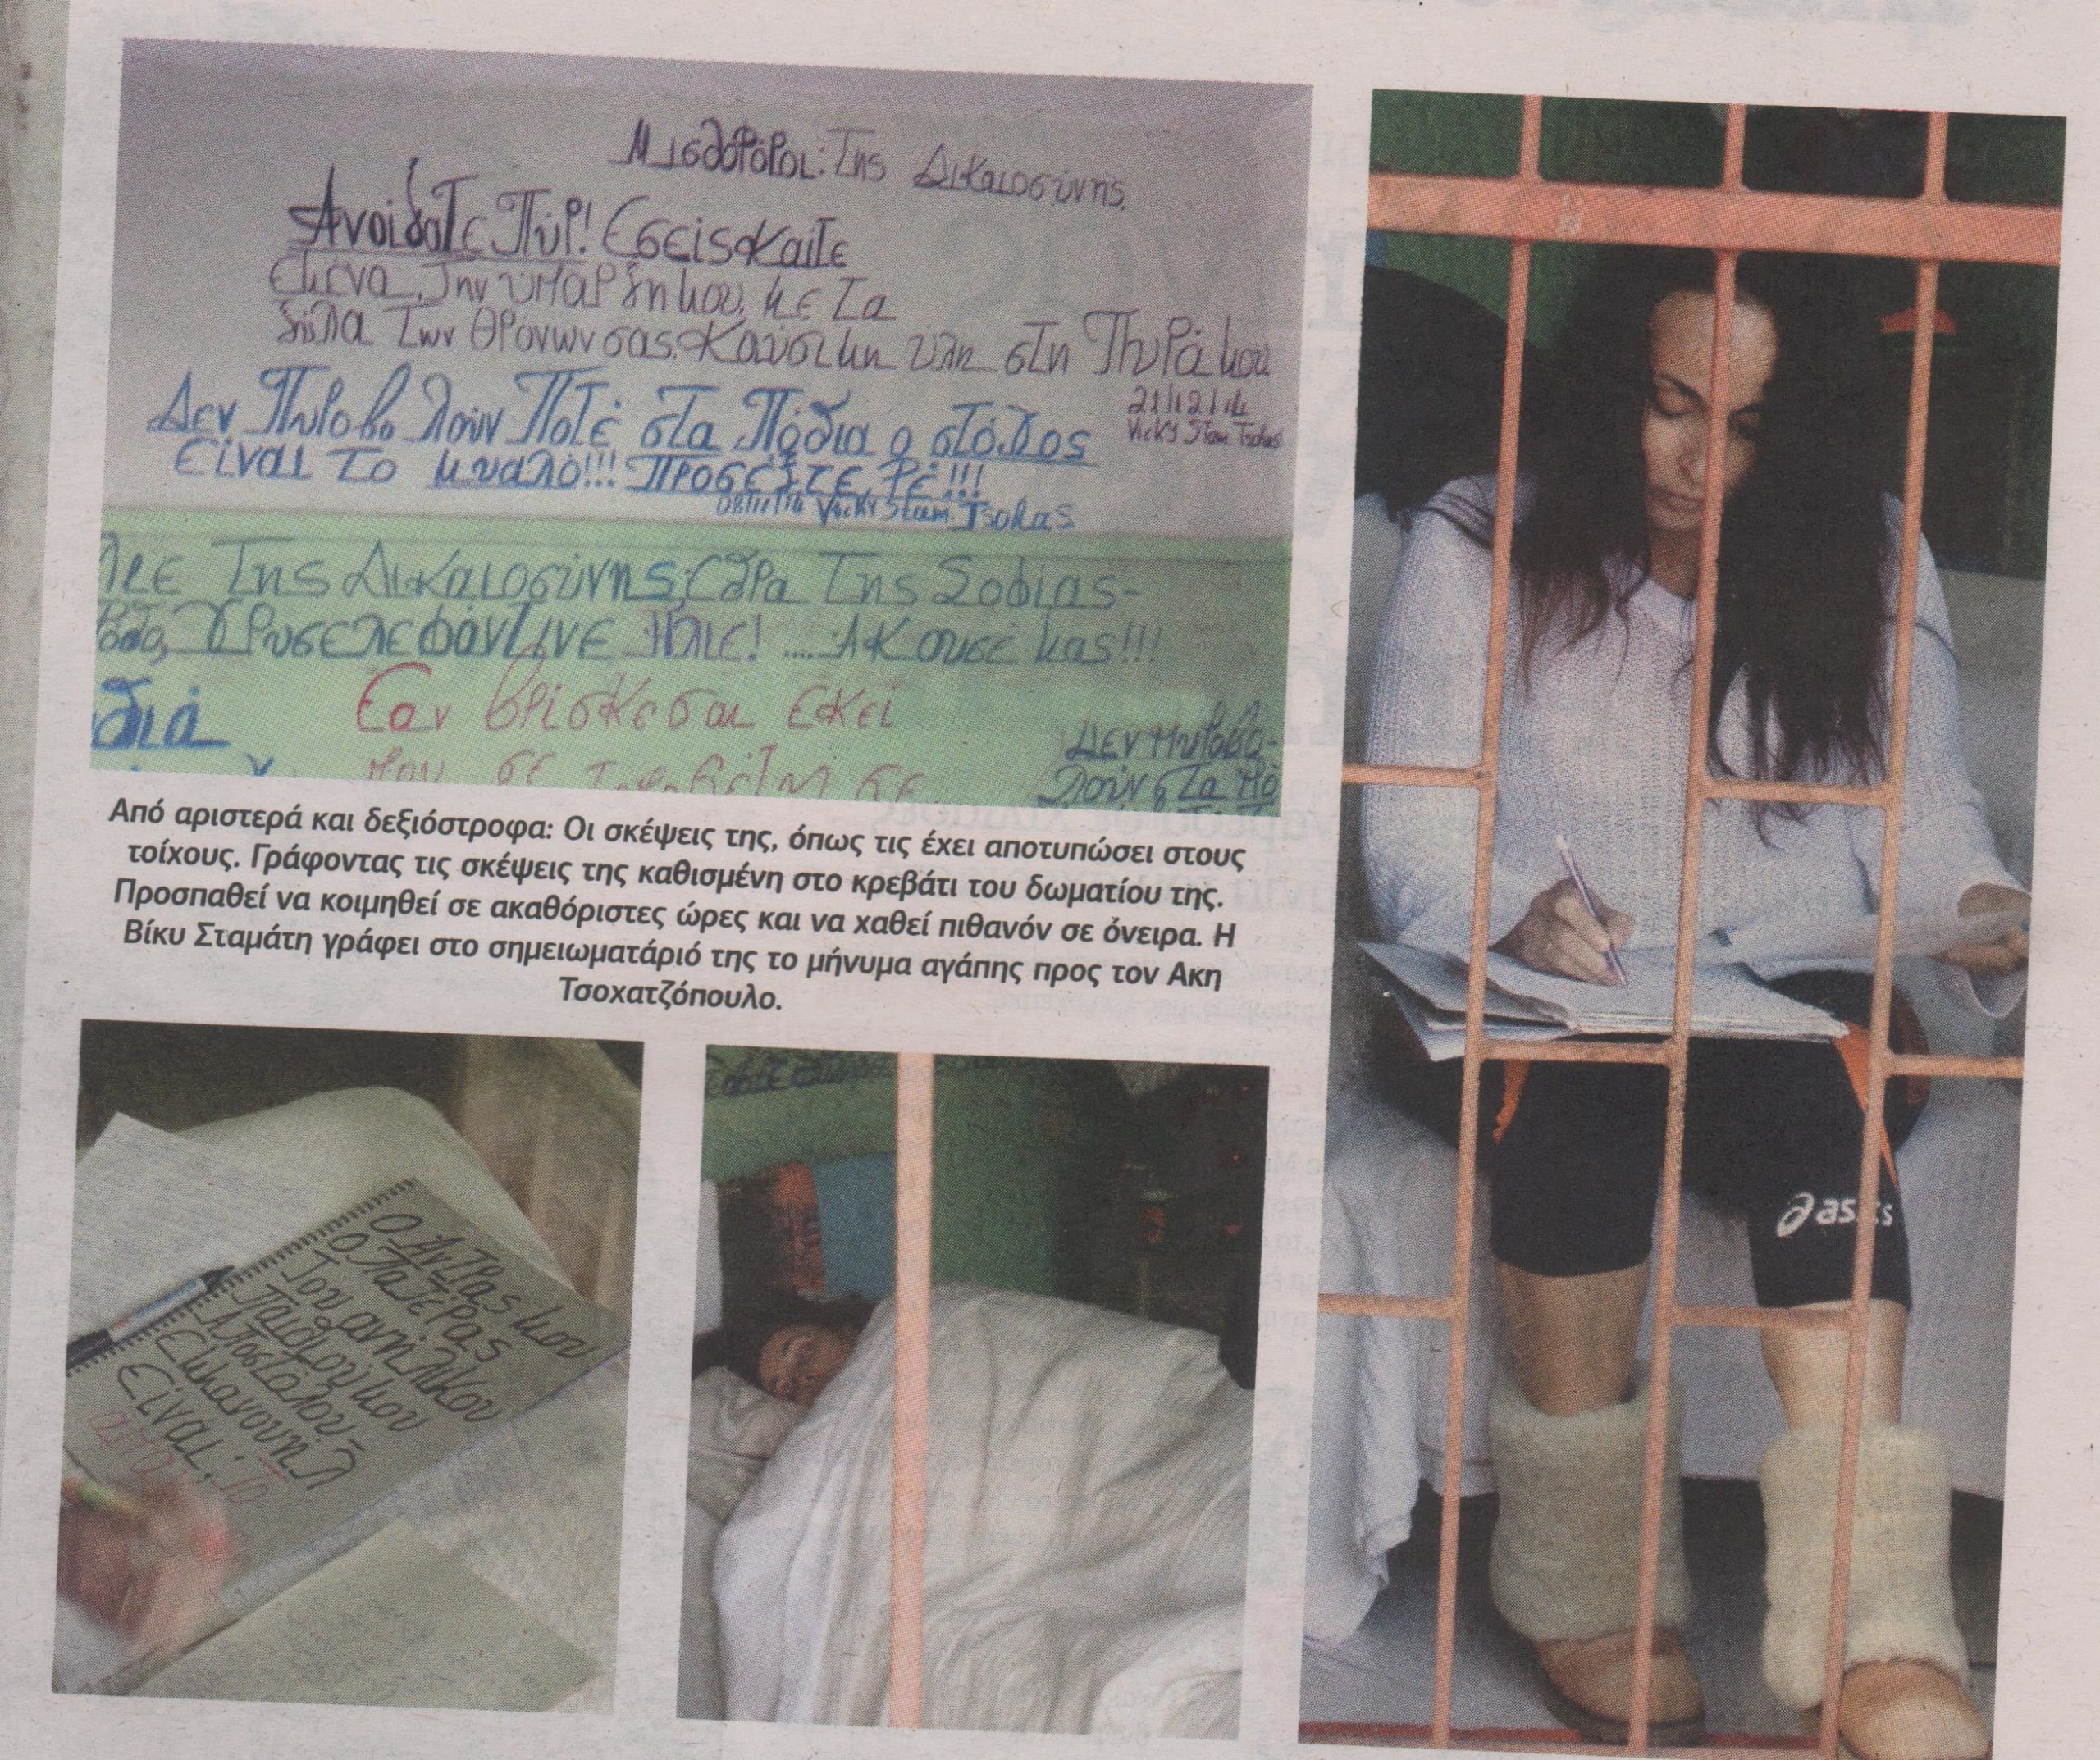 Μισθοφόροι: Της Δικαιοσύνης.
Ανοίξατε Πύρ! Εσείς καίτε
Εμένα, Την ύπαρξη μου, με Τα
ξύλα Των Θρόνων σας. Καύσιμη ύλη στη Πυρά μου
21/12/14
Vicky Stam. Tsohas
Δεν Πυροβολούν Ποτέ στα Πόδια ο στόχος
Είναι το μυαλό!!! Προσέξτε, Ρέ!!!
08/11/14 Vicky Stam. Tsohas
Της Δικαιοσύνης, έδρα Της Σοφίας-
Χρυσελεφάντινε Ηλιε! .... Ακουσέ μας!!!
Εαν βρίσκεσαι εκεί
που σε
Δεν Πυροβο-
λούν στα Πό
Από αριστερά και δεξιόστροφα: Οι σκέψεις της, όπως τις έχει αποτυπώσει στους
τοίχους. Γράφοντας τις σκέψεις της καθισμένη στο κρεβάτι του δωματίου της.
Προσπαθεί να κοιμηθεί σε ακαθόριστες ώρες και να χαθεί πιθανόν σε όνειρα. Η
Βίκυ Σταμάτη γράφει στο σημειωματάριό της το μήνυμα αγάπης προς τον Ακη
Τσοχατζόπουλο.
Ο Αντρας μου
Ο Πατέρας
Του ανήλικου
Παιδιού μου
Αποστόλου-
Εμμανουήλ
Είναι, Το
asics